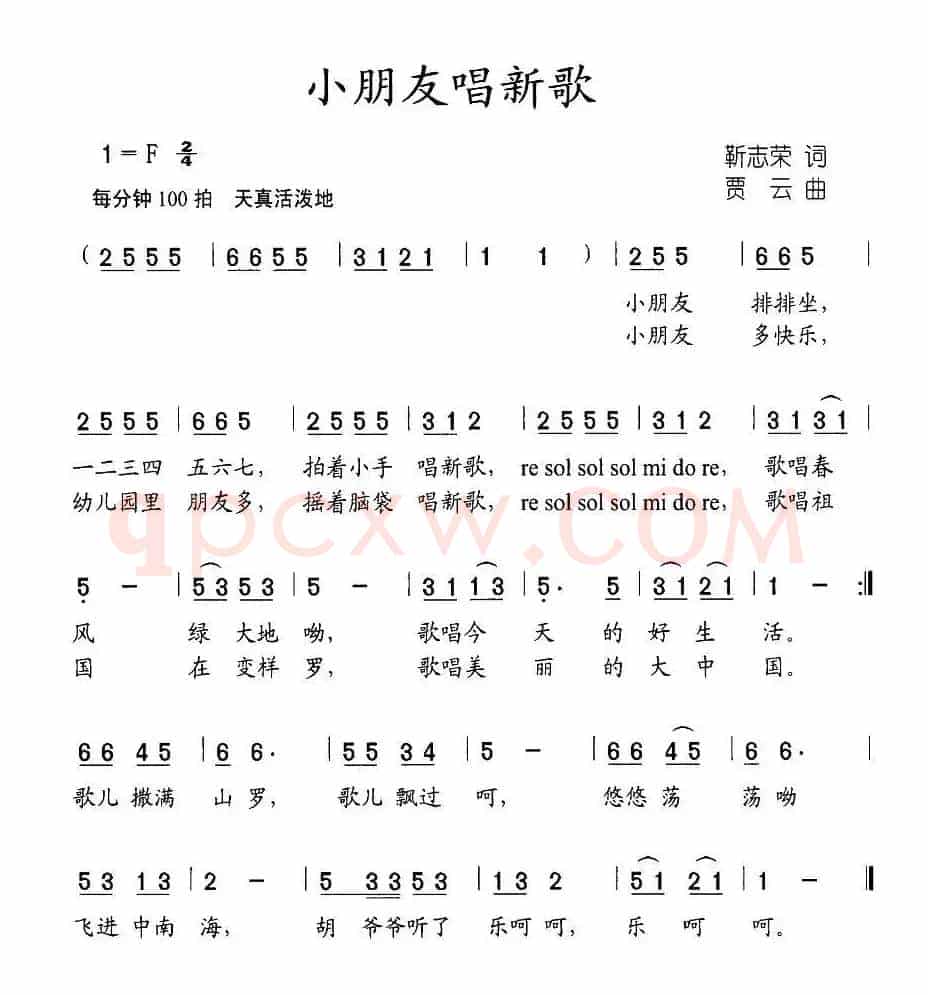 小朋友唱新歌
1 = F 2/4
靳志荣 词
每分钟 100 拍 天真活泼地
贾 云 曲
( 2 5 5 5 | 6 6 5 5 | 3 1 2 1 | 1 1 ) | 2 5 5 | 6 6 5 |
小朋友 排排坐,
小朋友 多快乐,
2 5 5 5 | 6 6 5 | 2 5 5 5 | 3 1 2 | 2 5 5 5 | 3 1 2 | 3 1 3 1 |
一二三四 五六七, 拍着小手 唱新歌, re sol sol sol mi do re, 歌唱春
幼儿园里 朋友多, 摇着脑袋 唱新歌, re sol sol sol mi do re, 歌唱祖
qpcxw.COM
5̣ − | 5 3 5 3 | 5 − | 3 1 1 3 | 5̣· 5̣ | 3 1 2 1 | 1 − :‖
风 绿 大地 呦, 歌唱今 天 的 好 生 活。
国 在 变样 罗, 歌唱美 丽 的 大 中 国。
6 6 4 5 | 6 6· | 5 5 3 4 | 5 − | 6 6 4 5 | 6 6· |
歌儿 撒满 山 罗, 歌儿 飘过 呵, 悠悠 荡 荡 呦
5 3 1 3 | 2 − | 5 3 3 5 3 | 1 3 2 | 5̣ 1 2 1 | 1 − ‖
飞进 中南 海, 胡 爷爷听了 乐呵呵, 乐 呵 呵。